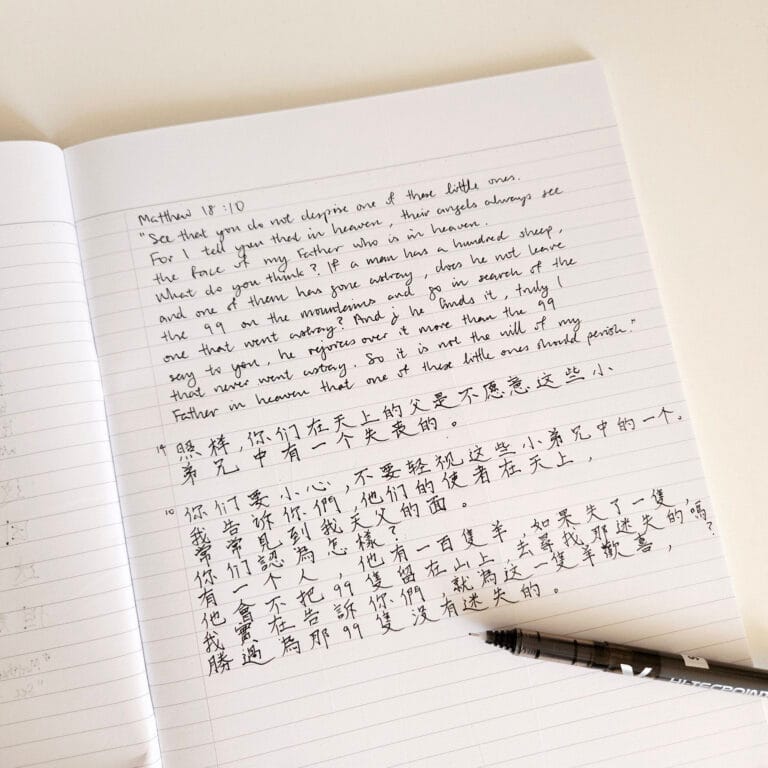 Matthew 18:10
"See that you do not despise one of these little ones.
For I tell you that in heaven, their angels always see
the face of my Father who is in heaven.
What do you think? If a man has a hundred sheep,
and one of them has gone astray, does he not leave
the 99 on the mountains and go in search of the
one that went astray? And if he finds it, truly I
say to you, he rejoices over it more than the 99
that never went astray. So it is not the will of my
Father in heaven that one of these little ones should perish."
14 照样,你们在天上的父是不愿意这些小
弟兄中有一个失丧的。
10 你们要小心,不要轻视这些小弟兄中的一个。
我告訴你們,他们的使者在天上,
常常見到我天父的面。
你们認為怎樣?
有一个人,他有一百隻羊,如果失了一隻,
他會不把99隻留在山上,去尋找那迷失的嗎?
我實在告訴你們,就為这一隻羊歡喜,
勝過為那99隻没有迷失的。
HI-TECPOINT